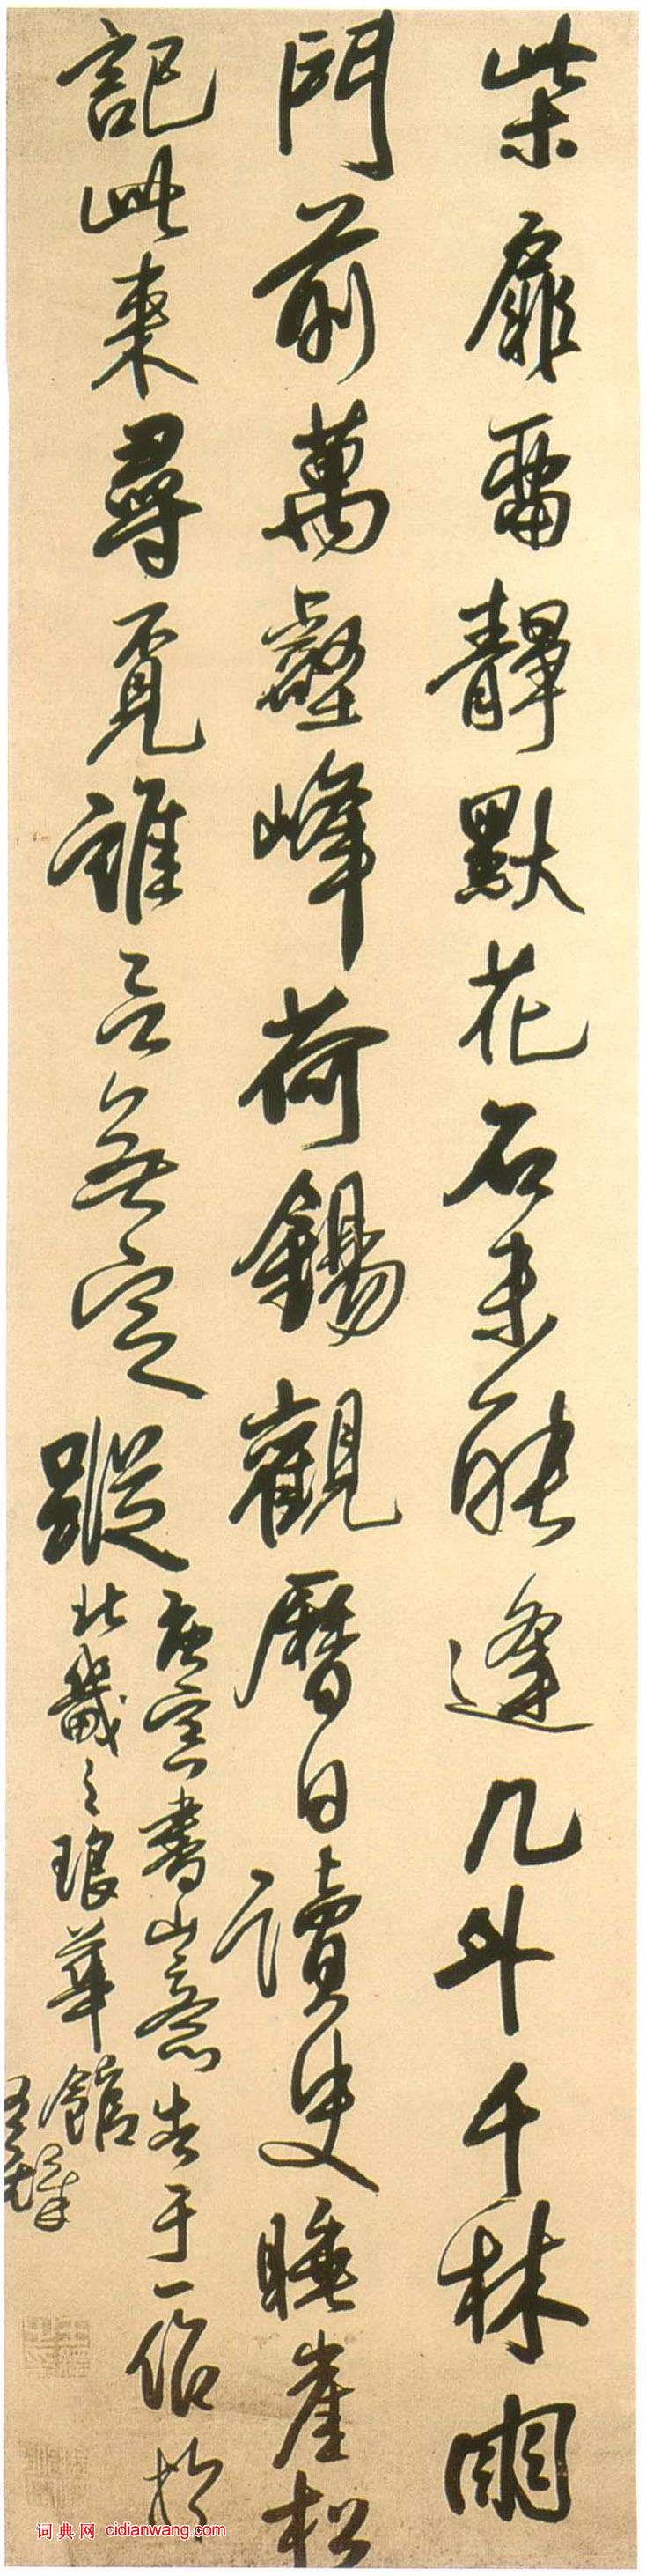 柴扉靜默花石未能逢几外千林
門前萬壑峰荷錫觀曆日讀史睡崖松
記此來尋覓誰言無定蹤
庚寅書山齋于一於
北畿之琅華館
王鐸
词典网 cidianwang.com